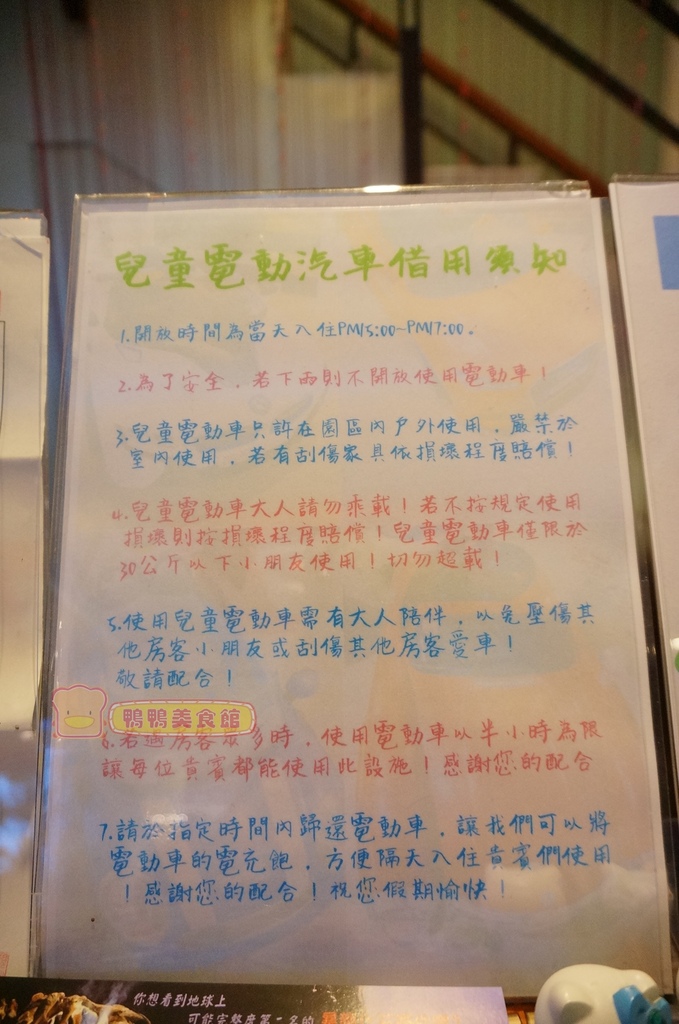 兒童電動汽車借用須知
1.開放時間為當天入住PM15:00~PM17:00。
2.為了安全，若下雨則不開放使用電動車！
3.兒童電動車只許在園區內戶外使用，嚴禁於
室內使用，若有刮傷家具依損壞程度賠償！
4.兒童電動車大人請勿乘載！若不按規定使用
損壞則按損壞程度賠償！兒童電動車僅限於
30公斤以下小朋友使用！切勿超載！
5.使用兒童電動車需有大人陪伴，以免壓傷其
他房客小朋友或刮傷其他房客愛車！
敬請配合！
鴨鴨美食館
6.若遇房客眾多時，使用電動車以半小時為限
讓每位貴賓都能使用此設施！感謝您的配合
7.請於指定時間內歸還電動車，讓我們可以將
電動車的電充飽，方便隔天入住貴賓們使用
！感謝您的配合！祝您假期愉快！
你想看到地球上
可能完整度第二名的